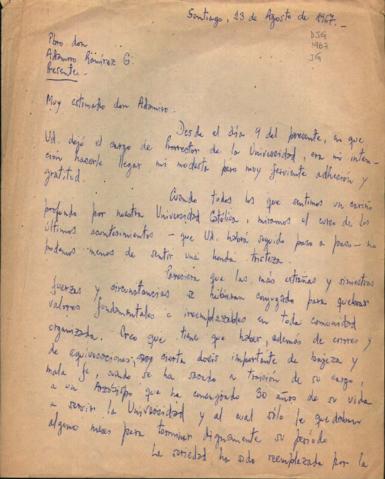 Santiago, 23 de Agosto de 1967.-
DJG
1967
JG
Pbro don
Adamiro Ramírez G.
Presente.-
Muy estimado don Adamiro.
Desde el día 9 del presente, en que
Ud. dejó el cargo de Prorrector de la Universidad, era mi inten-
ción hacerle llegar mi modesta pero muy ferviente adhesión y
gratitud.
Cuando todos los que sentimos un cariño
profundo por nuestra Universidad Católica, miramos el curso de los
últimos acontecimientos - que Ud. habrá seguido paso a paso - no
podemos menos de sentir una honda tristeza.
Pareciera que las más extrañas y siniestras
fuerzas y circunstancias se hubieran conjugado para quebrar
valores fundamentales e irreemplazables en toda comunidad
organizada. Creo que tiene que haber, además de errores y
de equivocaciones, cierta dosis importante de bajeza y
mala fe, cuando se ha sacado a traición de su cargo,
a un Arzobispo que ha consagrado 30 años de su vida
a servir la Universidad y al cual sólo le quedaban
algunos meses para terminar dignamente su período
La seriedad ha sido reemplazada por la